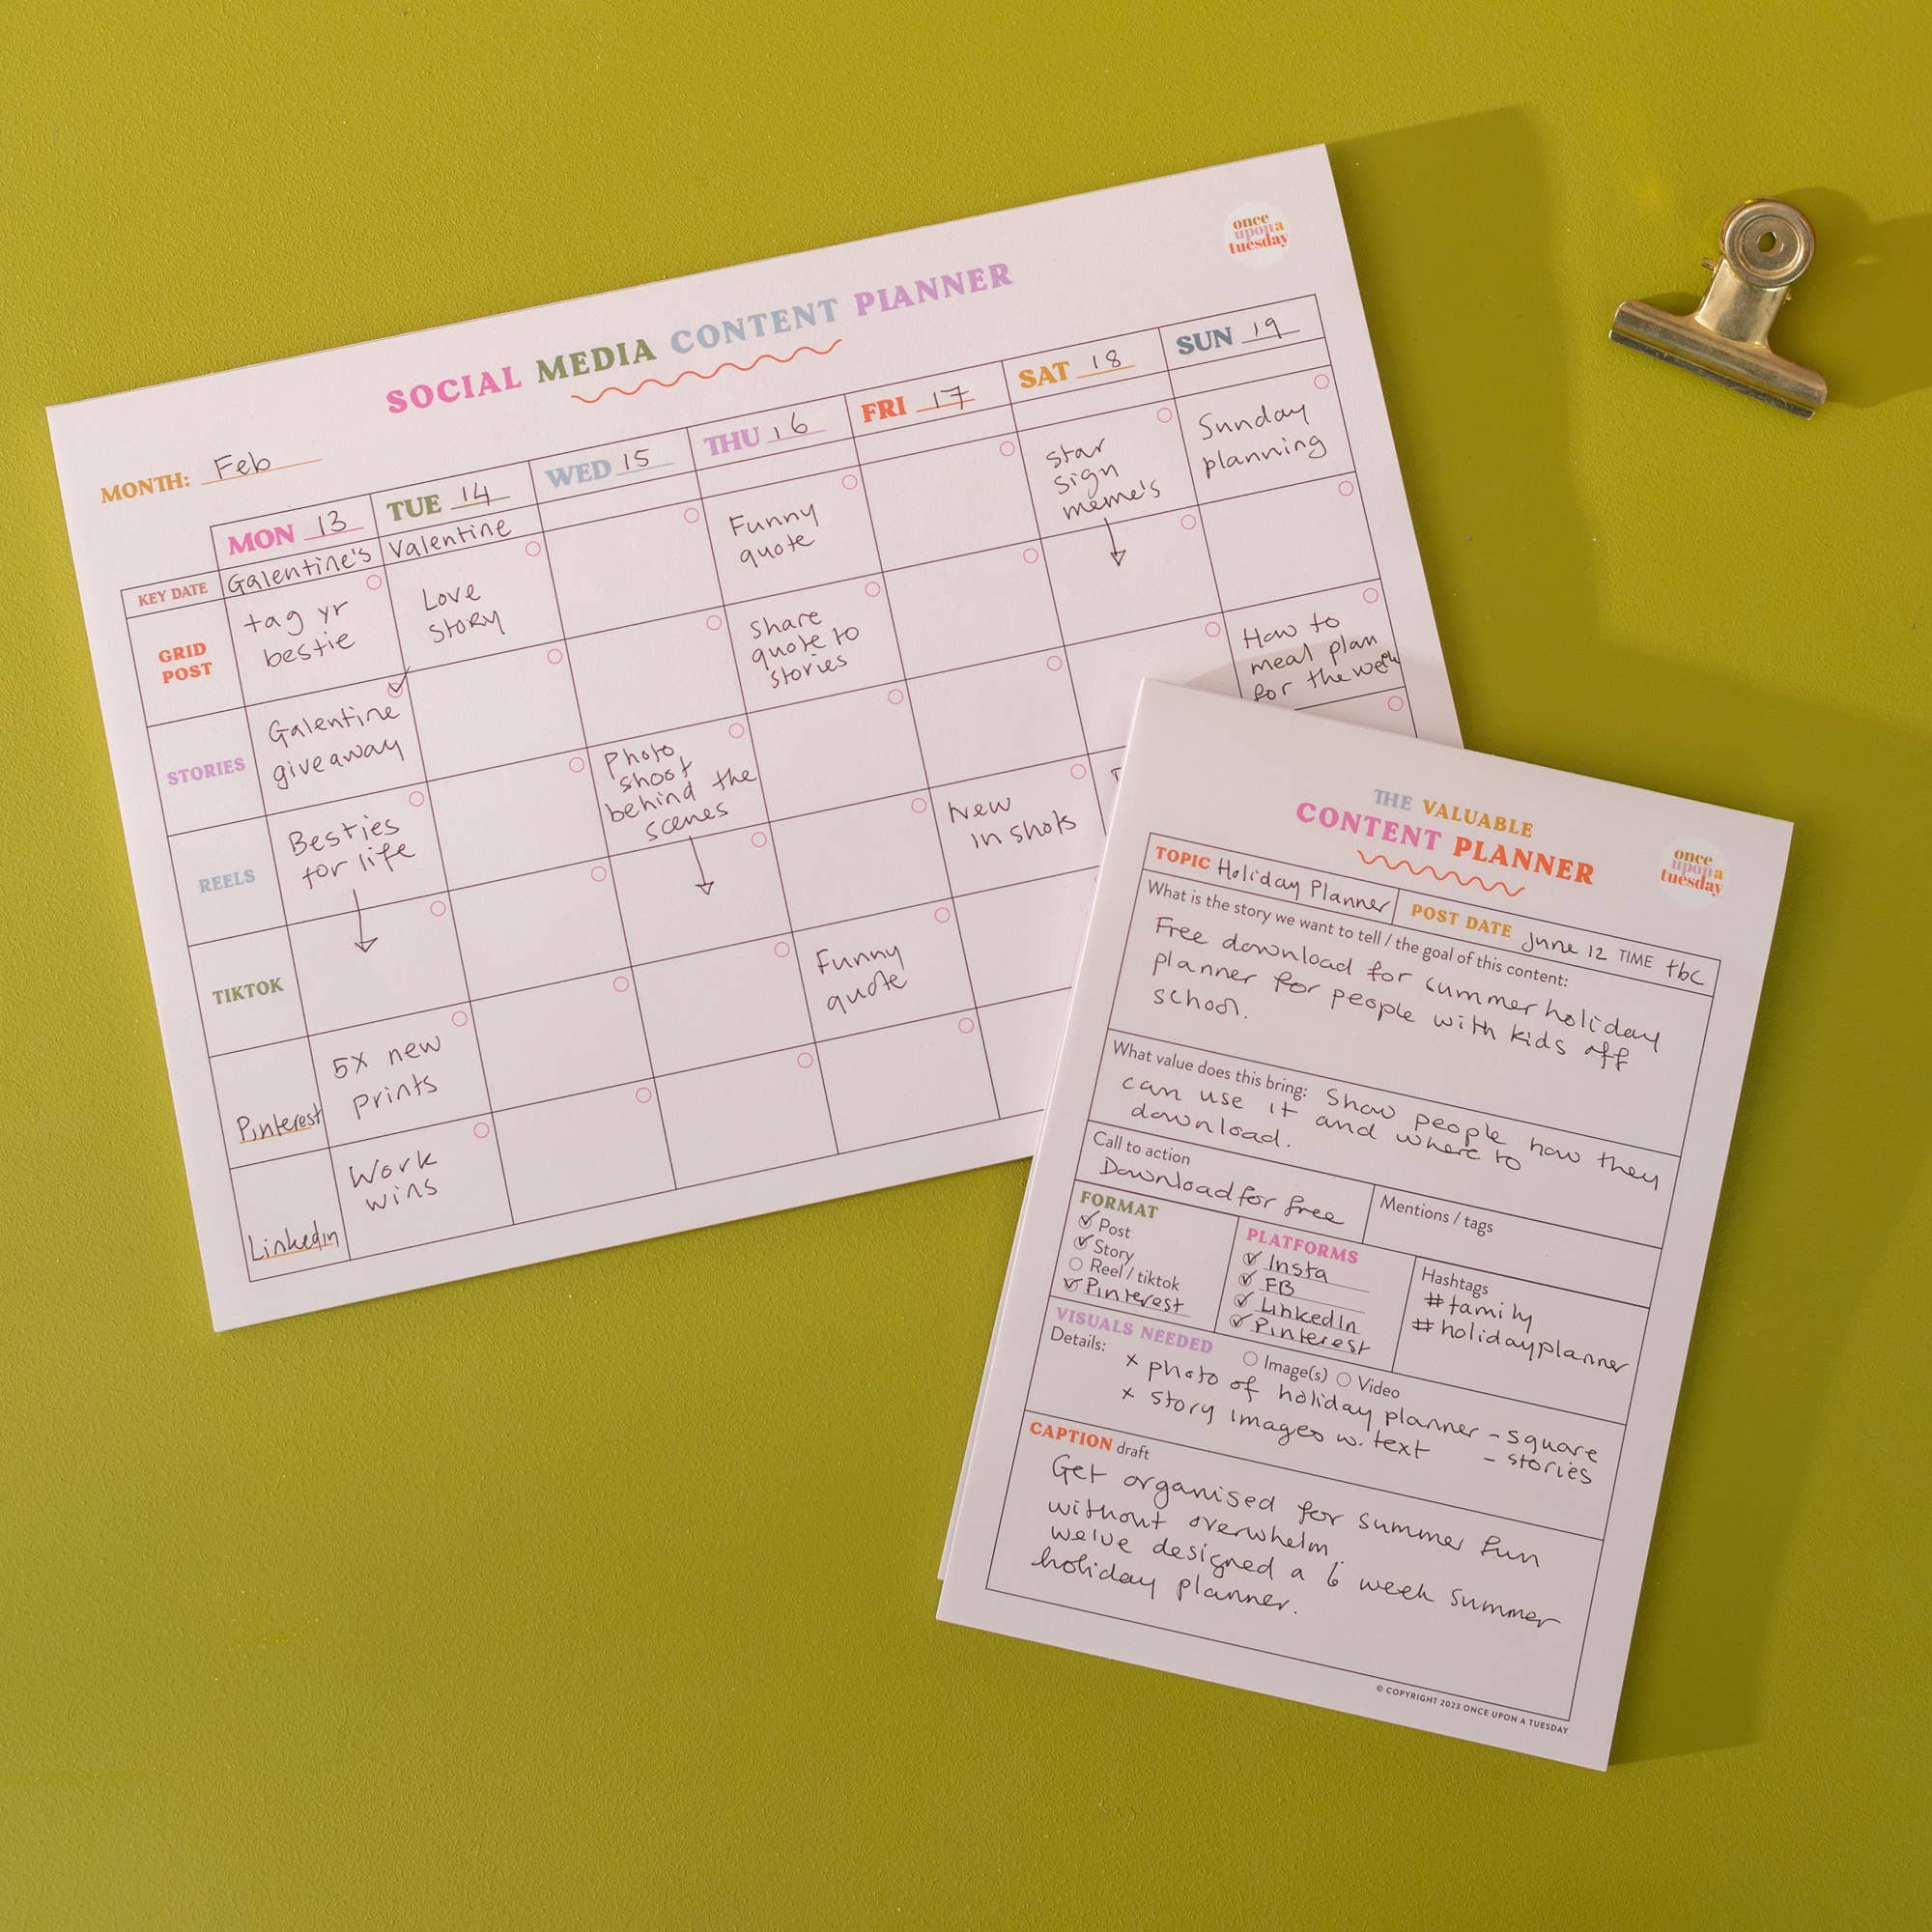 once
upon a
tuesday
SOCIAL MEDIA CONTENT PLANNER
MONTH: Feb
MON 13 TUE 14 WED 15 THU 16 FRI 17 SAT 18 SUN 19
KEY DATE Galentine's Valentine
GRID
POST
tag yr
bestie
Love
story
Funny
quote
star
sign
meme's
Sunday
planning
STORIES
Galentine
giveaway
Share
quote to
stories
REELS
Besties
for life
Photo
shoot
behind the
scenes
How to
meal plan
for the week
TIKTOK
New
in shots
Pinterest
5x new
prints
Funny
quote
LinkedIn
Work
wins
THE VALUABLE
CONTENT PLANNER
once
upon a
tuesday
TOPIC Holiday Planner POST DATE June 12 TIME tbc
What is the story we want to tell / the goal of this content:
Free download for summer holiday
planner for people with kids off
school.
What value does this bring: Show people how they
can use it and where to
download.
Call to action
Download for free
Mentions / tags
FORMAT
Post
Story
Reel / tiktok
Pinterest
PLATFORMS
Insta
FB
LinkedIn
Pinterest
Hashtags
#family
#holidayplanner
VISUALS NEEDED Image(s) Video
Details: x photo of holiday planner - square
x story images w. text - stories
CAPTION draft
Get organised for summer fun
without overwhelm.
we've designed a 6 week summer
holiday planner.
© COPYRIGHT 2023 ONCE UPON A TUESDAY